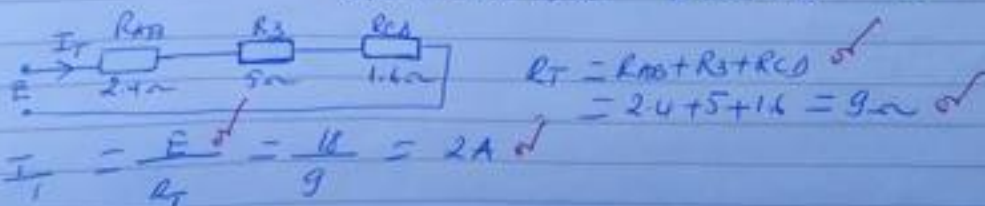 RAB R3 RCD
IT
E 2.4Ω 5Ω 1.6Ω
RT = RAB + R3 + RCD
= 2.4 + 5 + 1.6 = 9Ω
I = E/RT = 18/9 = 2A